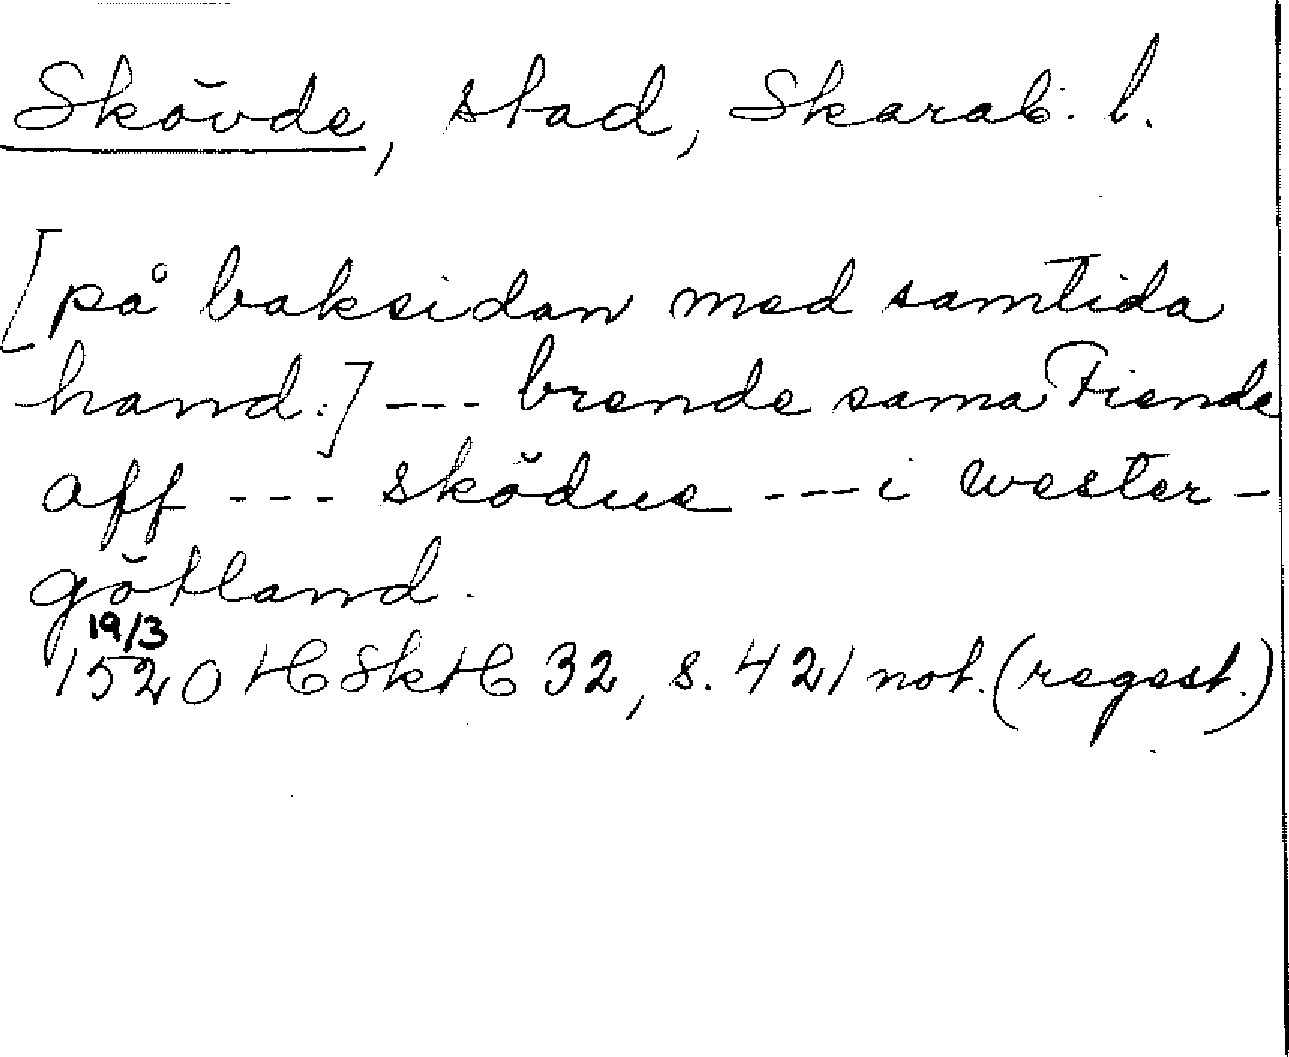 Skövde, stad, Skarab. l.
[på baksidan med samtida
hand:] --- brende sama Fiende
aff --- sködue --- i wester-
götland.
19/3
1520 HSkH 32, s. 421 not. (regest.)